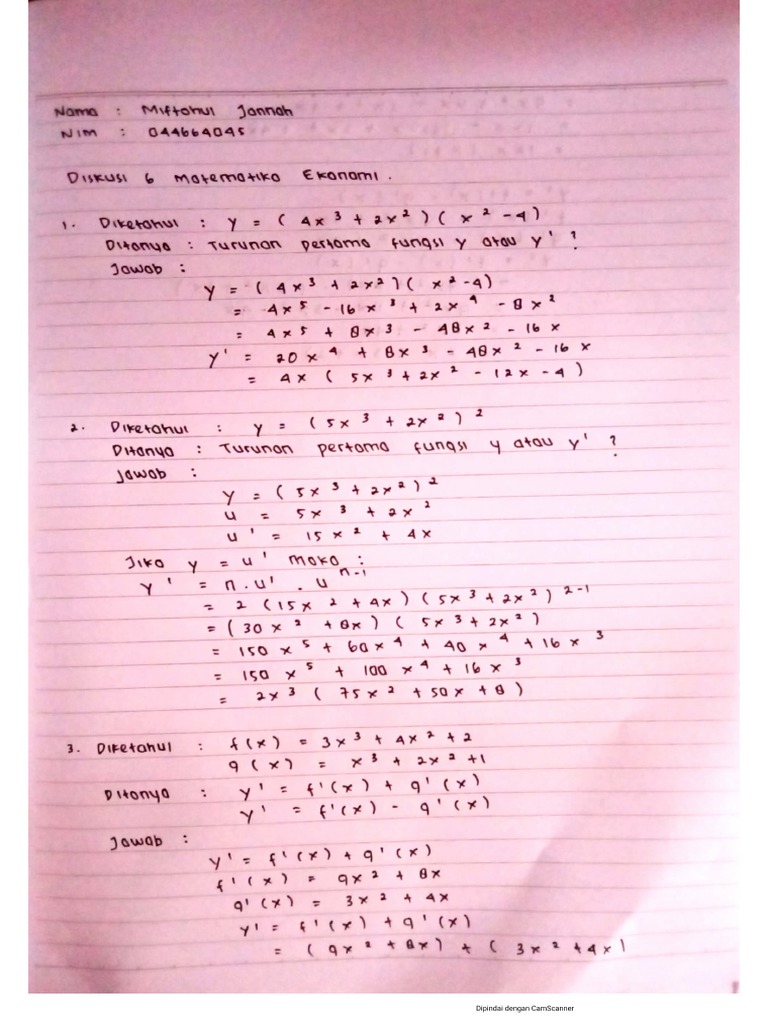 Nama : Miftahul Jannah
NIM : 044664045
Diskusi 6 Matematika Ekonomi.
1. Diketahui : y = (4x³ + 2x²)(x² - 4)
Ditanya : Turunan pertama fungsi y atau y' ?
Jawab :
y = (4x³ + 2x²)(x² - 4)
= 4x⁵ - 16x³ + 2x⁴ - 8x²
= 4x⁵ + 8x³ - 48x² - 16x
y' = 20x⁴ + 8x³ - 48x² - 16x
= 4x (5x³ + 2x² - 12x - 4)
2. Diketahui : y = (5x³ + 2x²)²
Ditanya : Turunan pertama fungsi y atau y' ?
Jawab :
y = (5x³ + 2x²)²
u = 5x³ + 2x²
u' = 15x² + 4x
Jika y = u' maka :
y' = n . u' . uⁿ⁻¹
= 2 (15x² + 4x)(5x³ + 2x²)²⁻¹
= (30x² + 8x) (5x³ + 2x²)
= 150x⁵ + 60x⁴ + 40x⁴ + 16x³
= 150x⁵ + 100x⁴ + 16x³
= 2x³ (75x² + 50x + 8)
3. Diketahui : f(x) = 3x³ + 4x² + 2
g(x) = x³ + 2x² + 1
Ditanya : y' = f'(x) + g'(x)
y' = f'(x) - g'(x)
Jawab :
y' = f'(x) + g'(x)
f'(x) = 9x² + 8x
g'(x) = 3x² + 4x
y' = f'(x) + g'(x)
= (9x² + 8x) + (3x² + 4x)
Dipindai dengan CamScanner